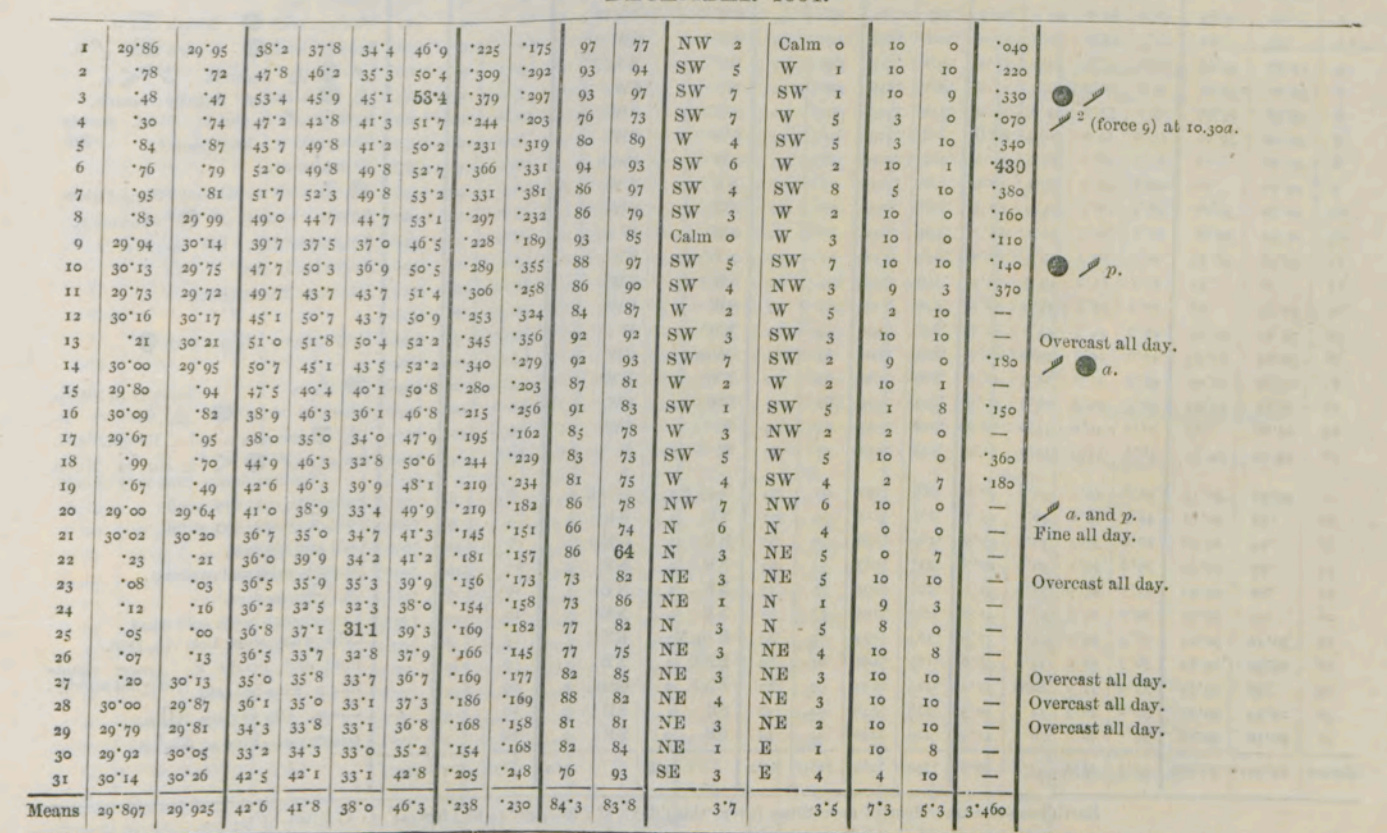 1 29·86 29·95 38·2 37·8 34·4 46·9 ·225 ·175 97 77 NW 2 Calm 0 10 0 ·040
2 ·78 ·72 47·8 46·2 35·3 50·4 ·309 ·292 93 94 SW 5 W 1 10 10 ·220
3 ·48 ·47 53·4 45·9 45·1 53·4 ·379 ·297 93 97 SW 7 SW 1 10 9 ·330
4 ·30 ·74 47·2 42·8 41·3 51·7 ·244 ·203 76 73 SW 7 W 5 3 0 ·070 2 (force 9) at 10.30a.
5 ·84 ·87 43·7 49·8 41·2 50·2 ·231 ·319 80 89 W 4 SW 5 3 10 ·340
6 ·76 ·79 52·0 49·8 49·8 52·7 ·366 ·331 94 93 SW 6 W 2 10 1 ·430
7 ·95 ·81 51·7 52·3 49·8 53·2 ·331 ·381 86 97 SW 4 SW 8 5 10 ·380
8 ·83 29·99 49·0 44·7 44·7 53·1 ·297 ·232 86 79 SW 3 W 2 10 0 ·160
9 29·94 30·14 39·7 37·5 37·0 46·5 ·228 ·189 93 85 Calm 0 W 3 10 0 ·110
10 30·13 29·75 47·7 50·3 36·9 50·5 ·289 ·355 88 97 SW 5 SW 7 10 10 ·140 p.
11 29·73 29·72 49·7 43·7 43·7 51·4 ·306 ·258 86 90 SW 4 NW 3 9 3 ·370
12 30·16 30·17 45·1 50·7 43·7 50·9 ·253 ·324 84 87 W 2 W 5 2 10 —
13 ·21 30·21 51·0 51·8 50·4 52·2 ·345 ·356 92 92 SW 3 SW 3 10 10 — Overcast all day.
14 30·00 29·95 50·7 45·1 43·5 52·2 ·340 ·279 92 93 SW 7 SW 2 9 0 ·180 a.
15 29·80 ·94 47·5 40·4 40·1 50·8 ·280 ·203 87 81 W 2 W 2 10 1 —
16 30·09 ·82 38·9 46·3 36·1 46·8 ·215 ·256 91 83 SW 1 SW 5 1 8 ·150
17 29·67 ·95 38·0 35·0 34·0 47·9 ·195 ·162 85 78 W 3 NW 2 2 0 —
18 ·99 ·70 44·9 46·3 32·8 50·6 ·244 ·229 83 73 SW 5 W 5 10 0 ·360
19 ·67 ·49 42·6 46·3 39·9 48·1 ·219 ·234 81 75 W 4 SW 4 2 7 ·180
20 29·00 29·64 41·0 38·9 33·4 49·9 ·219 ·182 86 78 NW 7 NW 6 10 0 — a. and p.
21 30·02 30·20 36·7 35·0 34·7 41·3 ·145 ·151 66 74 N 6 N 4 0 0 — Fine all day.
22 ·23 ·21 36·0 39·9 34·2 41·2 ·181 ·157 86 64 N 3 NE 5 0 7 —
23 ·08 ·03 36·5 35·9 35·3 39·9 ·156 ·173 73 82 NE 3 NE 5 10 10 — Overcast all day.
24 ·12 ·16 36·2 32·5 32·3 38·0 ·154 ·158 73 86 NE 1 N 1 9 3 —
25 ·05 ·00 36·8 37·1 31·1 39·3 ·169 ·182 77 82 N 3 N 5 8 0 —
26 ·07 ·13 36·5 33·7 32·8 37·9 ·166 ·145 77 75 NE 3 NE 4 10 8 —
27 ·20 30·13 35·0 35·8 33·7 36·7 ·169 ·177 82 85 NE 3 NE 3 10 10 — Overcast all day.
28 30·00 29·87 36·1 35·0 33·1 37·3 ·186 ·169 88 82 NE 4 NE 3 10 10 — Overcast all day.
29 29·79 29·81 34·3 33·8 33·1 36·8 ·168 ·158 81 81 NE 3 NE 2 10 10 — Overcast all day.
30 29·92 30·05 33·2 34·3 33·0 35·2 ·154 ·168 82 84 NE 1 E 1 10 8 —
31 30·14 30·26 42·5 42·1 33·1 42·8 ·205 ·248 76 93 SE 3 E 4 4 10 —
Means 29·897 29·925 42·6 41·8 38·0 46·3 ·238 ·230 84·3 83·8 3·7 3·5 7·3 5·3 3·460